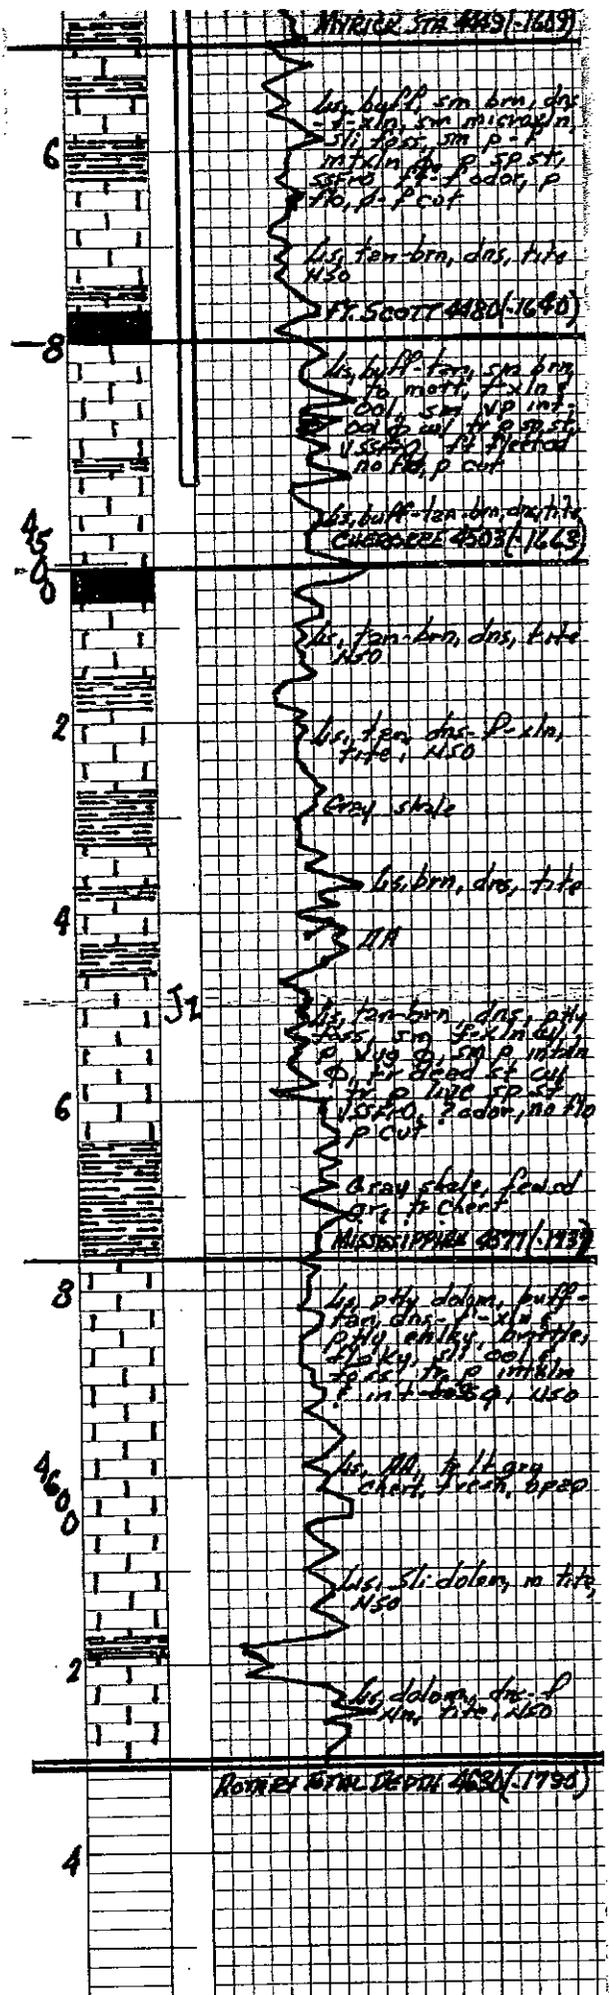 MYRICK STA 4449(-1609)
Ls, buff, sm brn, dns
-f-xln, sm microxln,
sli foss, sm p-f
intxln Φ, p sp st,
SSFRO, ft-f odor, p
flo, p-f cut
6
Ls, tan-brn, dns, tite
NSO
FT. SCOTT 4480(-1640)
8
Ls, buff-tan, sm brn
to mott, f-xln &
ool, sm vp int
ool Φ w/ tr p sp st,
VSSFRO, ft
no flo, p cut
Ls, buff-tan-brn, dns, tite
CHEROKEE 4503(-1663)
4500
Ls, tan-brn, dns, tite
NSO
2
Ls, tan, dns-f-xln,
tite, NSO
Gray shale
Ls, brn, dns, tite
4
AA
Jz
Ls, tan-brn, dns, ptly
foss, sm f-xln w/
p vug Φ, sm p intxln
Φ, fr dead st w/
tr p live sp st
VSSFRO, ? odor, no flo
p cut
6
Gray shale, few sd
gr, tr chert
MISSISSIPPIAN 4577(-1737)
8
Ls, ptly dolom, buff-
tan, dns-f-xln &
ptly chlky, brittle,
blocky, sli ool &
foss, tr p intxln
NSO
Ls, AA, tr lt gry
chert, fresh, opaq
4600
Ls, sli dolom, m tite,
NSO
2
Ls, dolom, dns-f
xln, tite, NSO
ROTARY TOTAL DEPTH 4630(-1790)
4